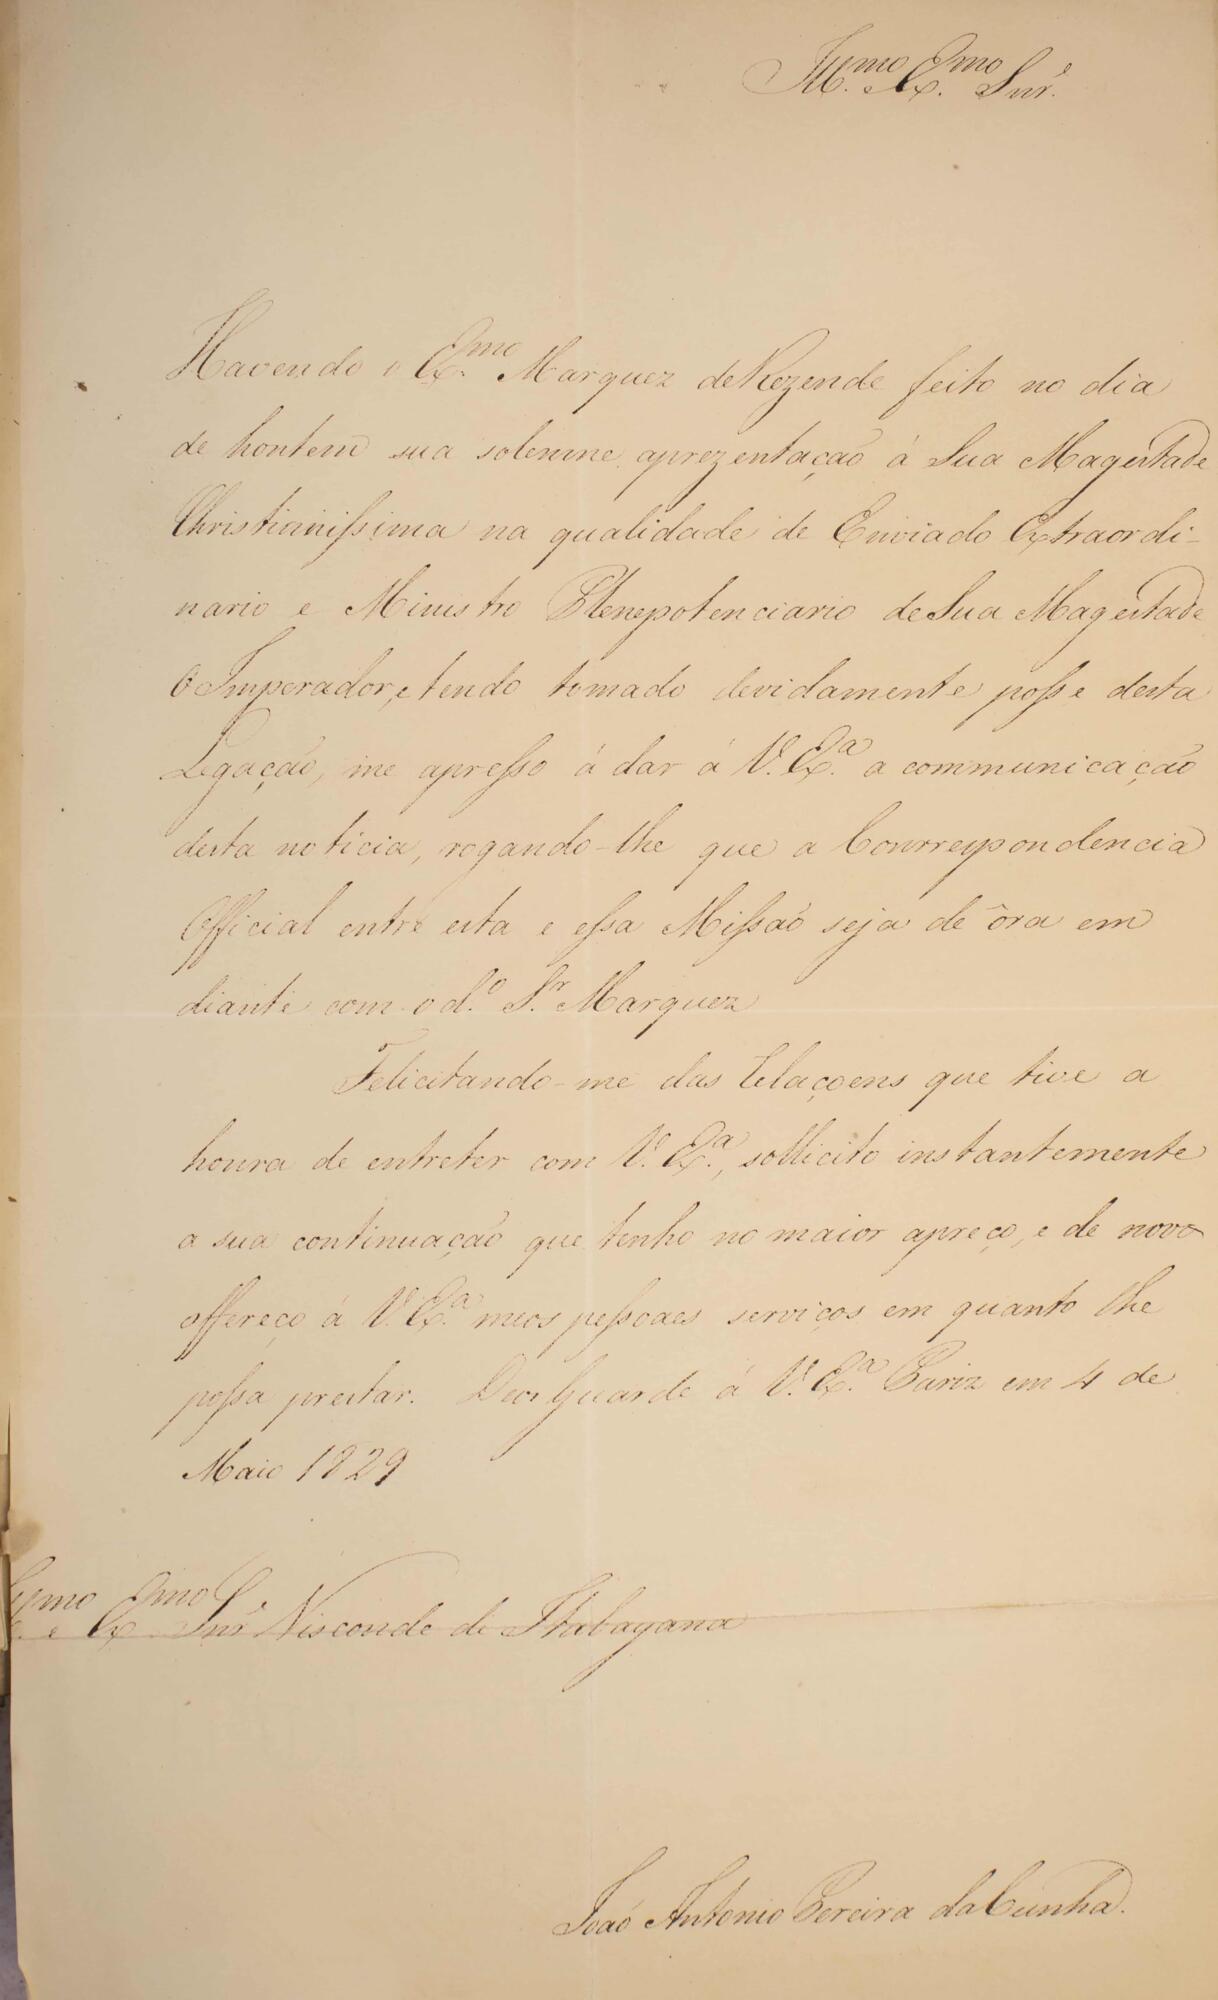 Ill.mo Ex.mo Snr.
Havendo o Ex.mo Marquez de Rezende feito no dia
de hontem sua solemne aprezentação á Sua Magestade
Christianissima na qualidade de Enviado Extraordi-
nario e Ministro Plenepotenciario de Sua Magestade
O Imperador, e tendo tomado devidamente posse desta
Legação, me apresso á dar á V. Ex.a a communicação
desta noticia, rogando-lhe que a Courrespondencia
Official entre esta e essa Missaõ seja de ôra em
diante com o d.o S.r Marquez
Felicitando-me das relaçoens que tive a
honra de entreter com V. Ex.a, sollicito instantemente
a sua continuação que tenho no maior apreço, e de novo
offereço á V. Ex.a meos pessoaes serviços em quanto lhe
possa prestar. Deos Guarde á V. Ex.a Pariz em 4 de
Maio 1829
mo e Ex.mo Snr. Visconde de Itabayana
Joaõ Antonio Pereira da Cunha.